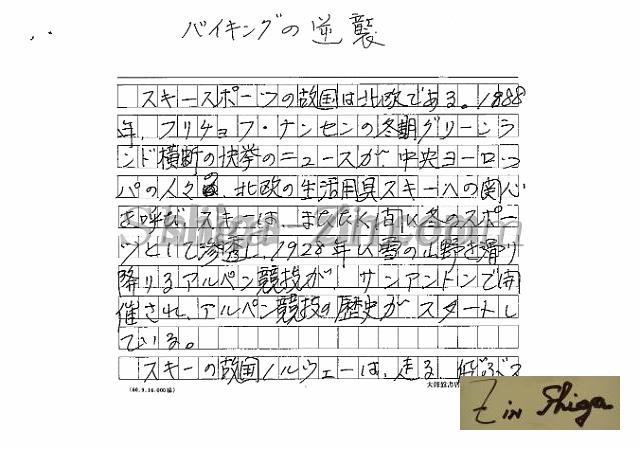 バイキングの逆襲
スキースポーツの故国は北欧である。1888
年、フリチョフ・ナンセンの冬期グリーンラ
ンド横断の快挙のニュースが中央ヨーロッ
パの人々の北欧の生活用具スキーへの関心
を呼び、スキーは、またたく間に冬のスポー
ツとして浸透し、1928年に雪の山野を滑り
降りるアルペン競技が サンアントンで開
催され、アルペン競技の歴史がスタートし
ている。
スキーの故国ノルウェーは、走る
(60.9.10.000協)
Z in Shiga